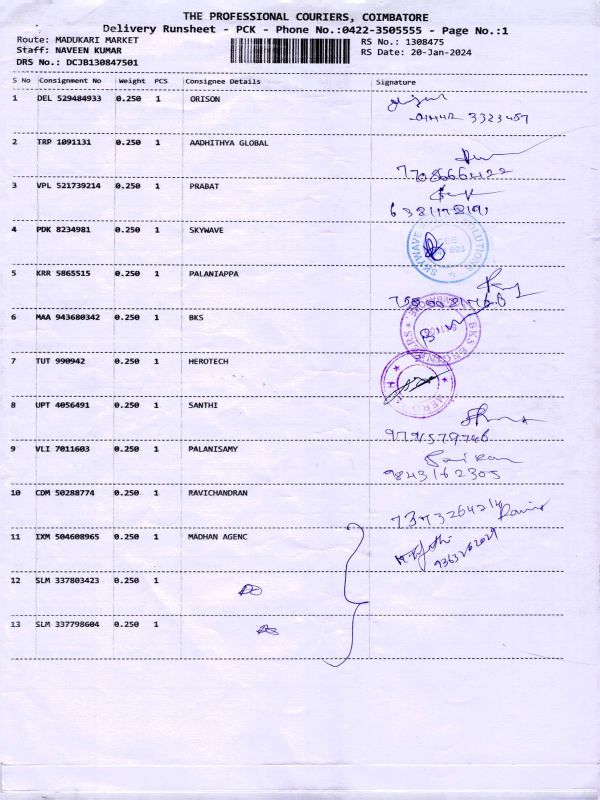 THE PROFESSIONAL COURIERS, COIMBATORE
Delivery Runsheet - PCK - Phone No.:0422-3505555 - Page No.:1
Route: MADUKARI MARKET
Staff: NAVEEN KUMAR
DRS No.: DCJB130847501
RS No.: 1308475
RS Date: 20-Jan-2024
S No Consignment No Weight PCS Consignee Details Signature
1 DEL 529484933 0.250 1 ORISON
2 TRP 1091131 0.250 1 AADHITHYA GLOBAL
3 VPL 521739214 0.250 1 PRABAT
4 PDK 8234981 0.250 1 SKYWAVE
SKYWAVE SOLUTIONS
5 KRR 5865515 0.250 1 PALANIAPPA
6 MAA 943680342 0.250 1 BKS
7 TUT 990942 0.250 1 HEROTECH
8 UPT 4056491 0.250 1 SANTHI
9791579746
9 VLI 7011603 0.250 1 PALANISAMY
9843162305
10 CDM 50288774 0.250 1 RAVICHANDRAN
11 IXM 504608965 0.250 1 MADHAN AGENC
12 SLM 337803423 0.250 1
13 SLM 337798604 0.250 1